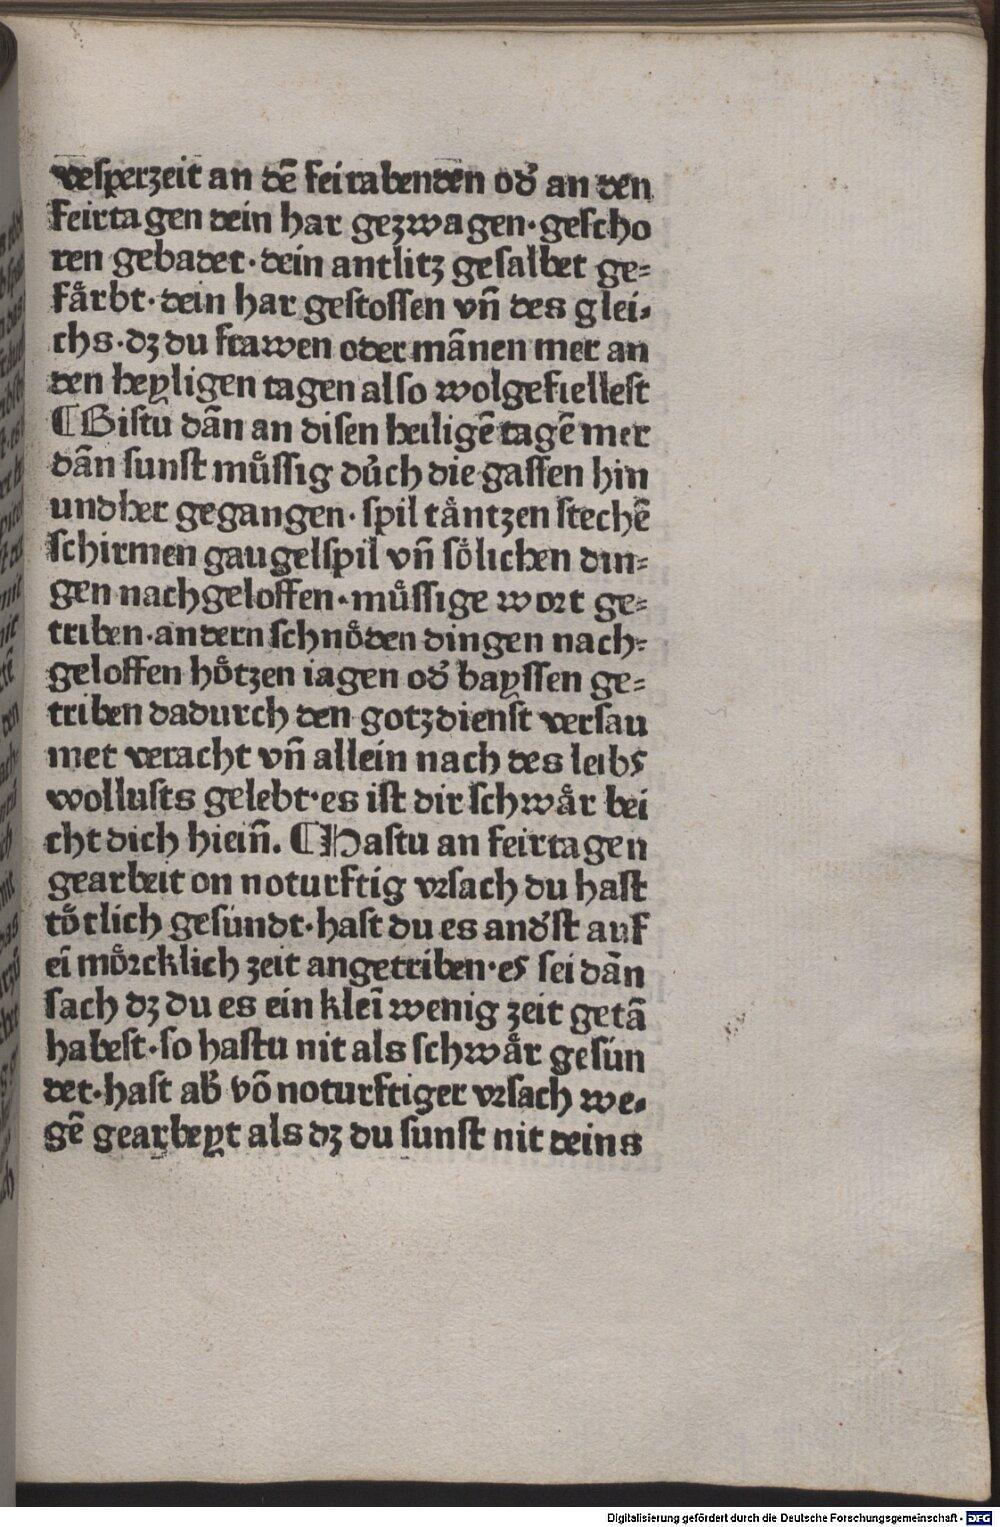 veſperzeit an dē feirabenden od̕ an den
feirtagen dein har gezwagen·geſcho
ren gebadet·dein antlitz geſalbet ge⸗
fåꝛbt·dein har geſtoſſen vn̄ des glei⸗
chs·dz du frawen oder mānen mer an
den heyligen tagen alſo wolgefielleſt
¶Biſtu dān an diſen heiligē tagē mer
dān ſunſt muͤſſig du̕ch die gaſſen hin
und her gegangen·ſpil taͤntzen ſtechē
ſchirmen gaugelſpil vn̄ ſoͤlichen din⸗
gen nachgeloffen·muͤſſige woꝛt ge⸗
triben·andern ſchnoͤden dingen nach⸗
geloffen hoͤtzen iagen od̕ bayſſen ge⸗
triben dadurch den gotzdienſt verſau
met veracht vn̄ allein nach des leibs
wolluſts gelebt·es iſt dir ſchwaͤr bei
cht dich hiein̄. ¶Haſtu an feirtagen
gearbeit on noturftig vꝛſach du haſt
toͤtlich geſündt·haſt du es and̕ſt auf
eī moͤꝛcklich zeit angetriben·es ſei dān
ſach dz du es ein kleī wenig zeit getā
habeſt·ſo haſtu nit als ſchwaͤr geſün
det·haſt ab̕ vō noturftiger vꝛſach we⸗
gē gearbeyt als dz du ſunſt nit deins
Digitalisierung gefördert durch die Deutsche Forschungsgemeinschaft - DFG